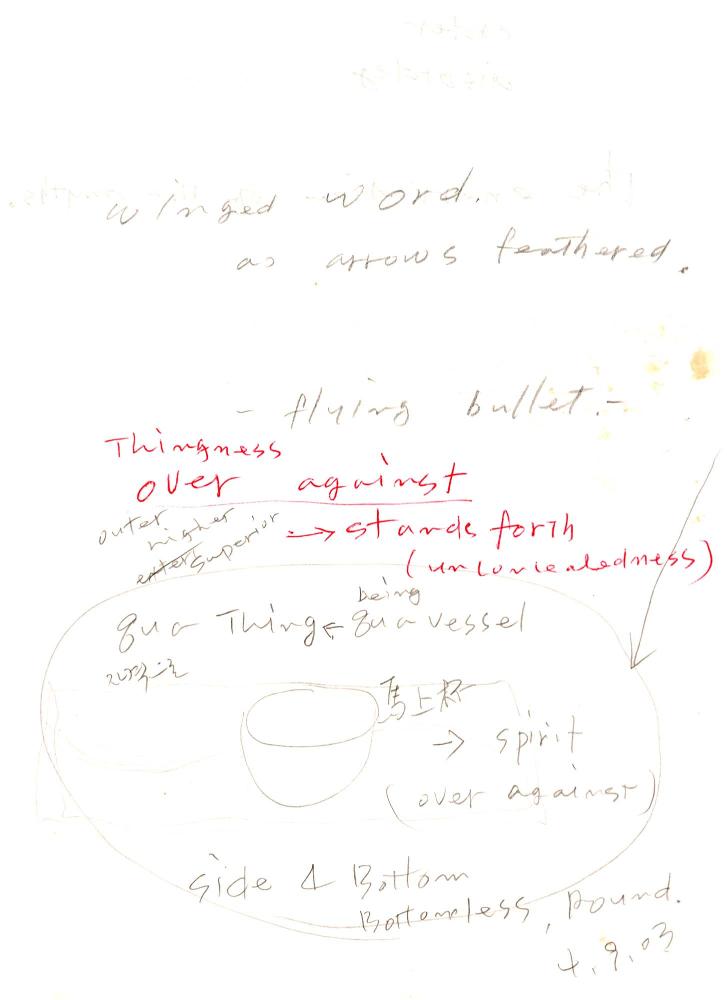 winged word.
as arrows feathered.
- flying bullet. -
Thingness
over against
outer
higher
superior
→ stands forth
(unconcealedness)
being
qua Thing ← qua vessel
馬上杯
→ spirit
(over against)
side & Bottom
Bottomless, Round.
4.9.03